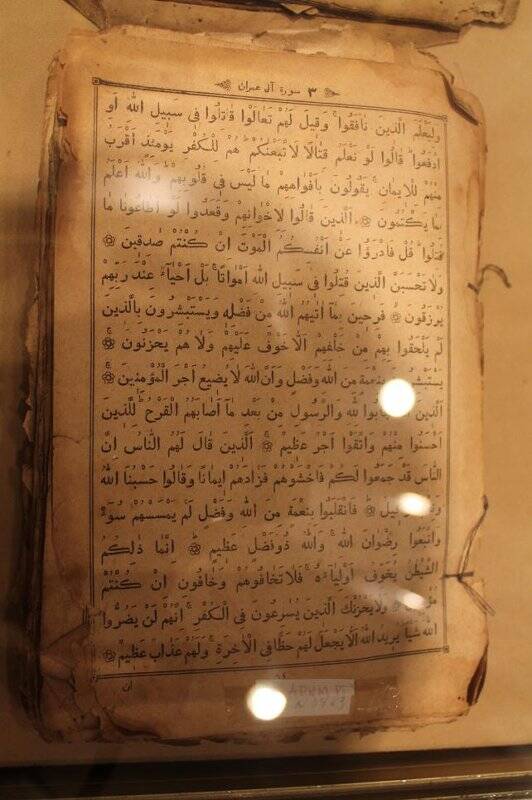 ٣ سورة آل عمران
وليعلم الذين نافقوا وقيل لهم تعالوا قاتلوا فى سبيل الله او
ادفعوا قالوا لو نعلم قتالا لاتبعنكم هم للكفر يومئذ اقرب
منهم للايمان يقولون بافواههم ما ليس فى قلوبهم والله اعلم
بما يكتمون الذين قالوا لاخوانهم وقعدوا لو اطاعونا ما
قتلوا قل فادرؤا عن انفسكم الموت ان كنتم صدقين
ولا تحسبن الذين قتلوا فى سبيل الله امواتا بل احياء عند ربهم
يرزقون فرحين بما اتيهم الله من فضله ويستبشرون بالذين
لم يلحقوا بهم من خلفهم الا خوف عليهم ولا هم يحزنون
يستبشرون بنعمة من الله وفضل وان الله لا يضيع اجر المؤمنين
الذين لله والرسول من بعد ما اصابهم القرح للذين
احسنوا منهم واتقوا اجر عظيم الذين قال لهم الناس ان
الناس قد جمعوا لكم فاخشوهم فزادهم ايمانا وقالوا حسبنا الله
فانقلبوا بنعمة من الله وفضل لم يمسسهم سوء
واتبعوا رضوان الله والله ذوفضل عظيم انما ذلكم
الشيطن يخوف اولياءه فلا تخافوهم وخافون ان كنتم
ولا يحزنك الذين يسرعون فى الكفر انهم لن يضروا
الله شيأ يريد الله الا يجعل لهم حظا فى الاخرة ولهم عذاب عظيم
ان